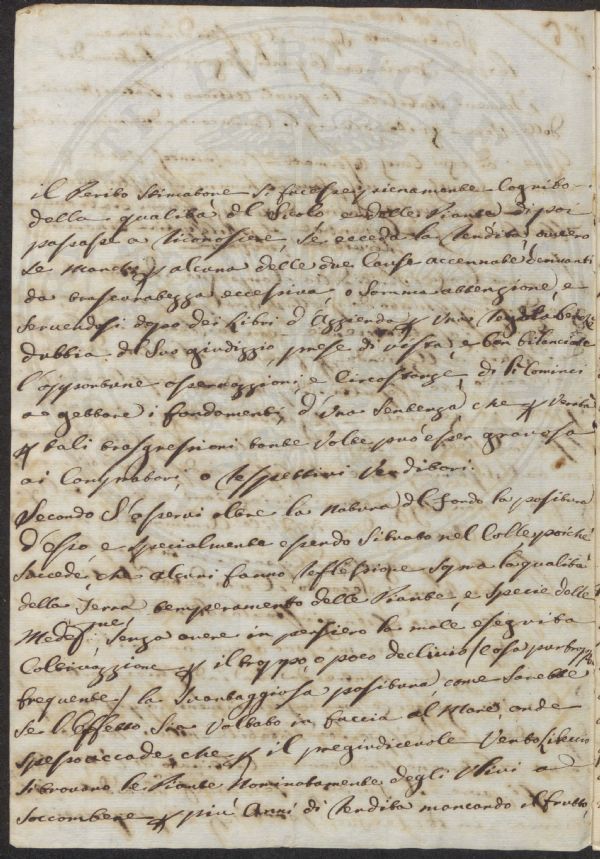 il Perito Stimatore si facesse pienamente cognito
della qualità del Sicolo e delle Piante di poi
passasse a riconoscere, se ecceda la rendita, ouero
se manchi p alcuna delle due Cause accennate derivanti
da trascuratezza eccessiva, o somma attenzione, e
seruendosi dopo dei libri d'Azzienda p una regola
dubbia del suo giudizzio, prese di vista, e ben bilanciate
l'opportune osservazzioni, e Circostanze, di lì Cominci
a gettare i fondamenti d'una sentenza che p
p tali trasgressioni tante volte può esser gravosa
ai Compratori, o respettivi Venditori.
Secondo S'osservi oltre la natura del fondo la positura
d'esso, e specialmente essendo situato nel Colle poiché
succede, che alcuni fanno reflessione sopra la qualità
della Terra temperamento delle Piante, e specie delle
Medesime, senza avere in pensiero la male eseguita
Coltivazzione p il troppo, o poco declivio (cosa pur troppo
frequente) la svantaggiosa positura come sarebbe
se l'Effetto sia voltato in faccia al Mare, onde
spesso accade, che p il pregiudicevole Vento Libeccio
si trovano le Piante nominatamente degli Ulivi a
soccombere p più Anni di rendita mancando il frutto,